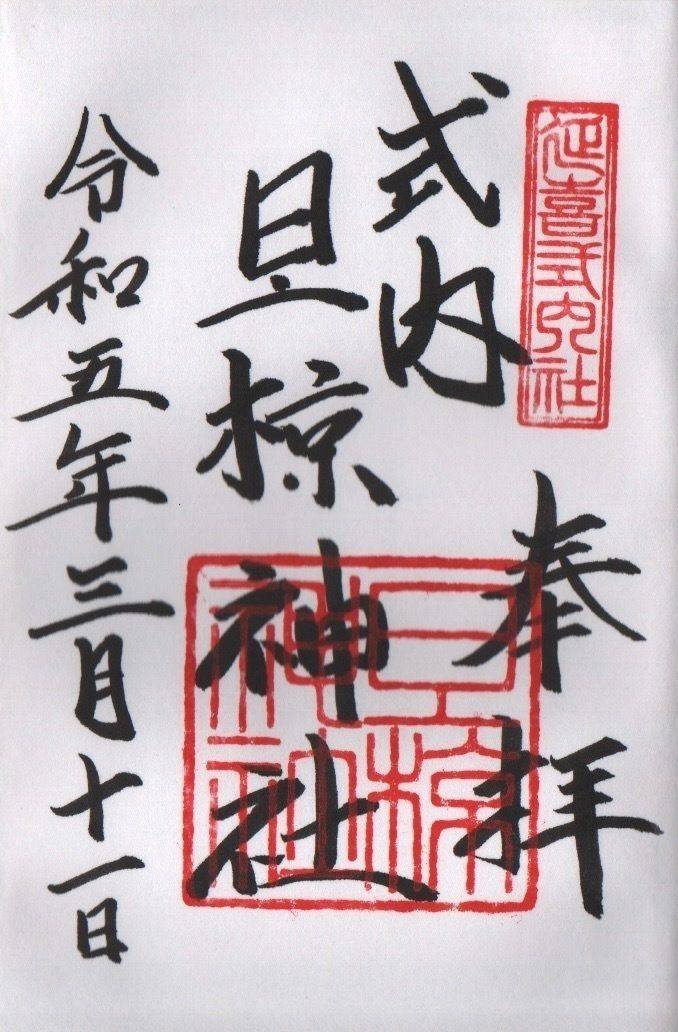 延喜式内社
奉拝
式内
旦椋神社
旦椋神社
令和五年三月十一日